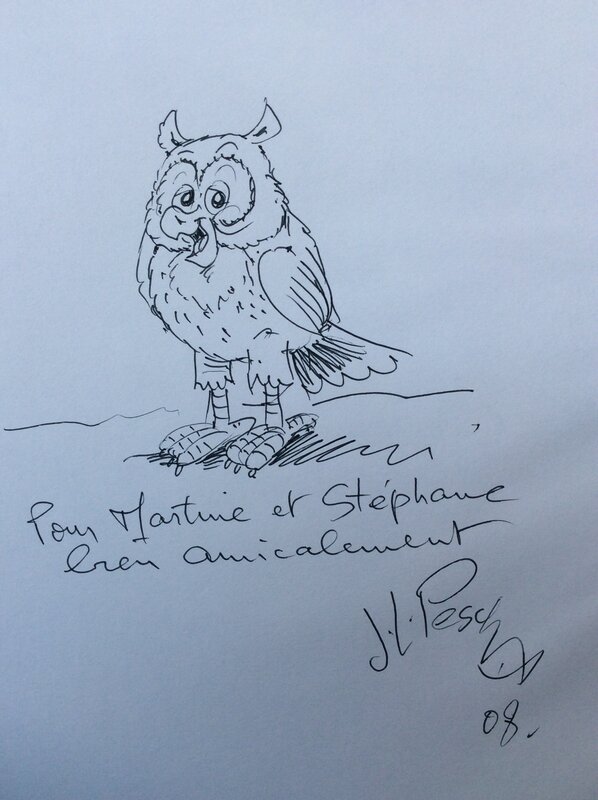 Pour Martine et Stéphane
bien amicalement
J.L. Pesch
08.